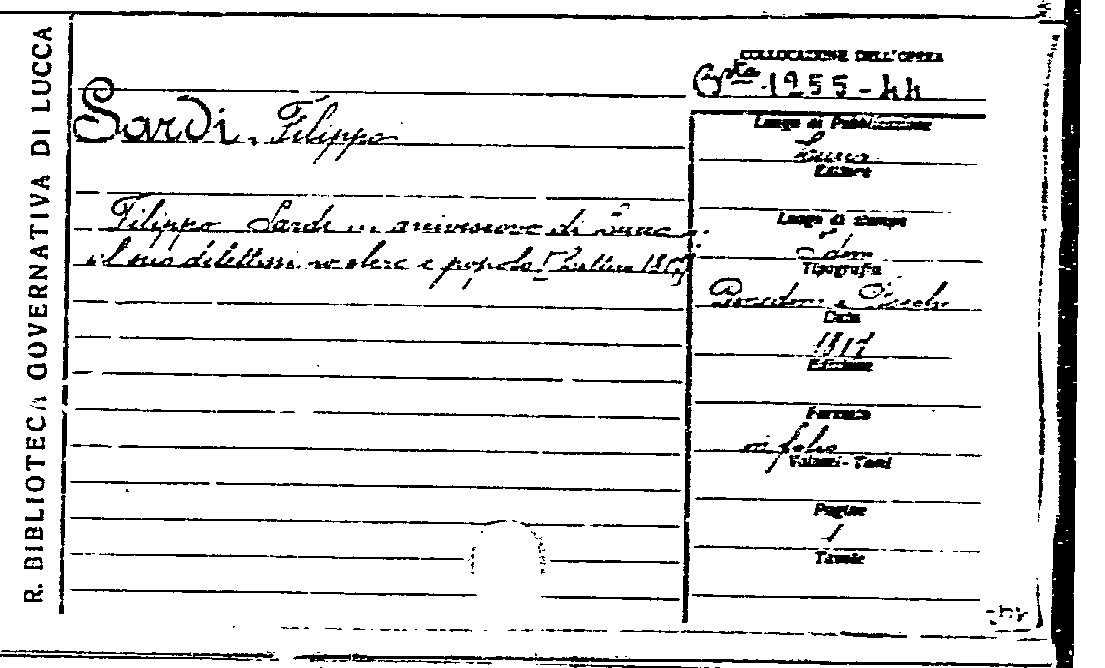 R. BIBLIOTECA GOVERNATIVA DI LUCCA
COLLOCAZIONE DELL'OPERA
Bsta 1255-44
Sardi, Filippo
Luogo di Pubblicazione
Lucca
Editore
Filippo Sardi arcivescovo di Lucca
il suo dilettissimo clero e popolo
Luogo di stampa
Idem
Tipografia
Data
1817
Edizione
Formato
in folio
Volumi - Tomi
Pagine
1
Tavole